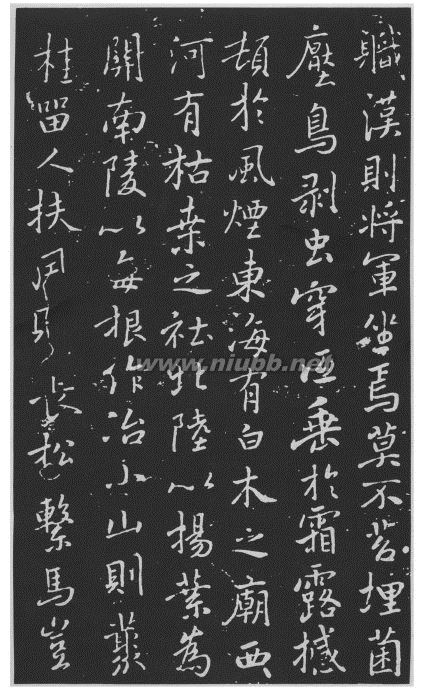 軄漢則将軍坐焉莫不苔埋菌
壓鳥剥虫穿低垂於霜露撼
頓於風煙東海有白木之廟西
河有枯桒之社北陸以楊葉為
關南陵以每根作冶小山則叢
桂留人扶風則長松繫馬豈
www.niubb.net